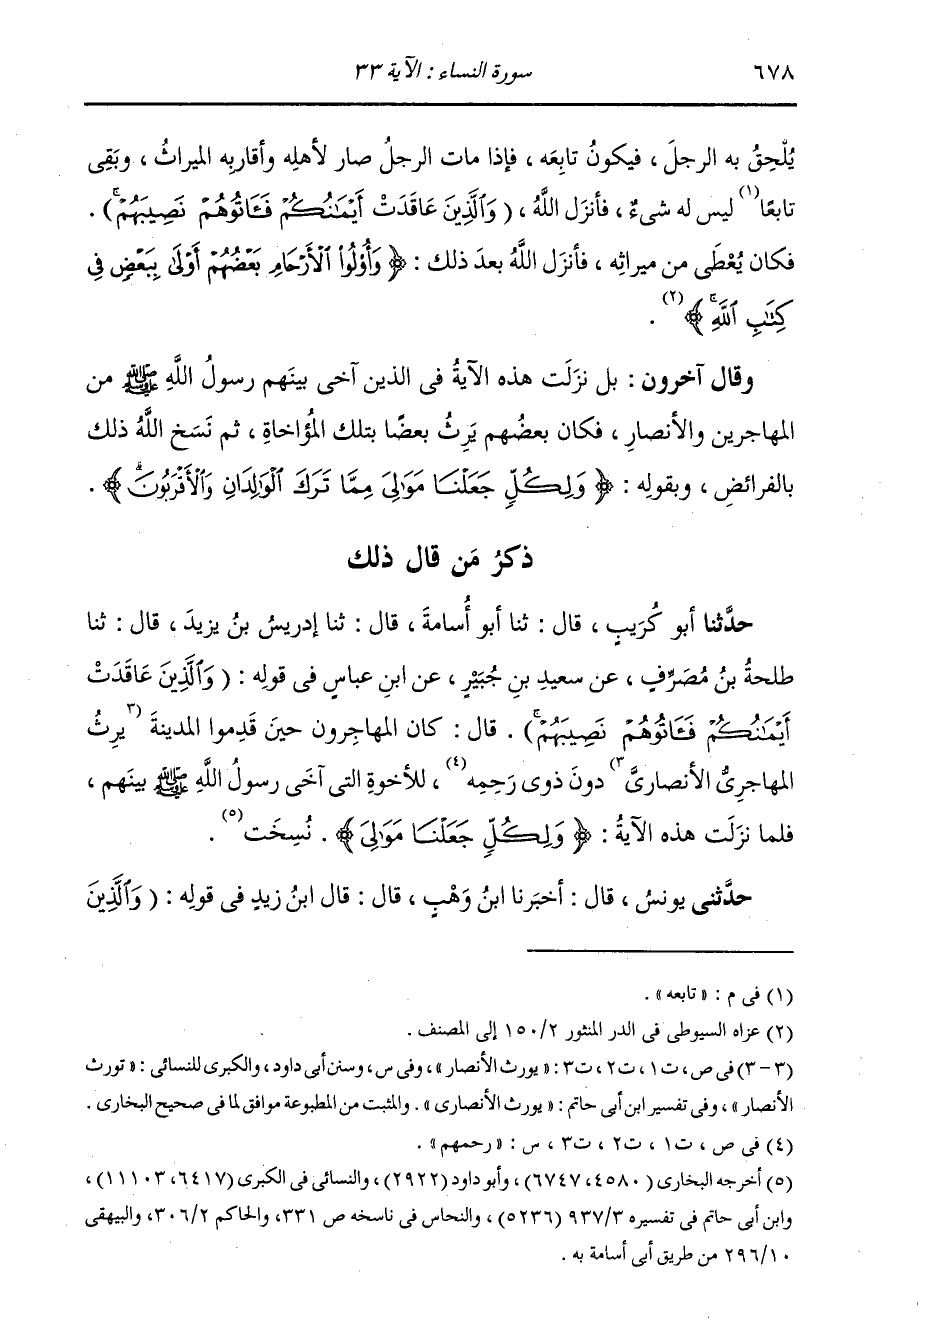 ٦٧٨ سورة النساء : الآية ٣٣
يُلْحِقُ به الرجلَ ، فيكونُ تابِعَه ، فإذا مات الرجلُ صار لأهلِه وأقاربِه الميراثُ ، وبَقِى
تابعًا(١) ليس له شىءٌ ، فأنزَل اللَّهُ ، ( وَٱلَّذِينَ عَاقَدَتْ أَيْمَـٰنُكُمْ فَـَٔاتُوهُمْ نَصِيبَهُمْ ۚ ) .
فكان يُعْطَى من ميراثِه ، فأنزَل اللَّهُ بعدَ ذلك : ﴿ وَأُوْلُوا۟ ٱلْأَرْحَامِ بَعْضُهُمْ أَوْلَىٰ بِبَعْضٍ فِى
كِتَـٰبِ ٱللَّهِ ۚ ﴾(٢) .
وقال آخرون : بل نزَلَت هذه الآيةُ فى الذين آخى بينَهم رسولُ اللَّهِ ﷺ من
المهاجرين والأنصارِ ، فكان بعضُهم يَرِثُ بعضًا بتلك المُؤاخاةِ ، ثم نَسَخ اللَّهُ ذلك
بالفرائضِ ، وبقولِه : ﴿ وَلِكُلٍّ جَعَلْنَا مَوَٰلِىَ مِمَّا تَرَكَ ٱلْوَٰلِدَانِ وَٱلْأَقْرَبُونَ ۚ ﴾ .
ذكرُ مَن قال ذلك
حدَّثنا أبو كُرَيبٍ ، قال : ثنا أبو أُسامةَ ، قال : ثنا إدريسُ بنُ يزيدَ ، قال : ثنا
طلحةُ بنُ مُصَرِّفٍ ، عن سعيدِ بنِ جُبَيْرٍ ، عن ابنِ عباسٍ فى قولِه : ( وَٱلَّذِينَ عَاقَدَتْ
أَيْمَـٰنُكُمْ فَـَٔاتُوهُمْ نَصِيبَهُمْ ۚ ) . قال : كان المهاجِرون حينَ قَدِموا المدينةَ (٣يرِثُ
المهاجِرىُّ الأنصارىَّ٣) دونَ ذوى رَحِمِه(٤) ، للأخوةِ التى آخَى رسولُ اللَّهِ ﷺ بينَهم ،
فلما نزَلَت هذه الآيةُ : ﴿ وَلِكُلٍّ جَعَلْنَا مَوَٰلِىَ ﴾ . نُسِخَت(٥) .
حدَّثنى يونسُ ، قال : أخبَرنا ابنُ وَهْبٍ ، قال : قال ابنُ زيدٍ فى قولِه : ( وَٱلَّذِينَ
(١) فى م : « تابعه » .
(٢) عزاه السيوطى فى الدر المنثور ١٥٠/٢ إلى المصنف .
(٣ – ٣) فى ص، ت١ ، ت٢ ، ت٣ : « يورث الأنصار » ، وفى س، وسنن أبى داود، والكبرى للنسائى : « تورث
الأنصار » ، وفى تفسير ابن أبى حاتم : « يورث الأنصارى » . والمثبت من المطبوعة موافق لما فى صحيح البخارى .
(٤) فى ص ، ت١ ، ت٢ ، ت٣ ، س : « رحمهم » .
(٥) أخرجه البخارى (٤٥٨٠، ٦٧٤٧) ، وأبو داود (٢٩٢٢) ، والنسائى فى الكبرى (٦٤١٧، ١١١٠٣) ،
وابن أبى حاتم فى تفسيره ٩٣٧/٣ (٥٢٣٦) ، والنحاس فى ناسخه ص ٣٣١، والحاكم ٣٠٦/٢، والبيهقى
٢٩٦/١٠ من طريق أبى أسامة به .